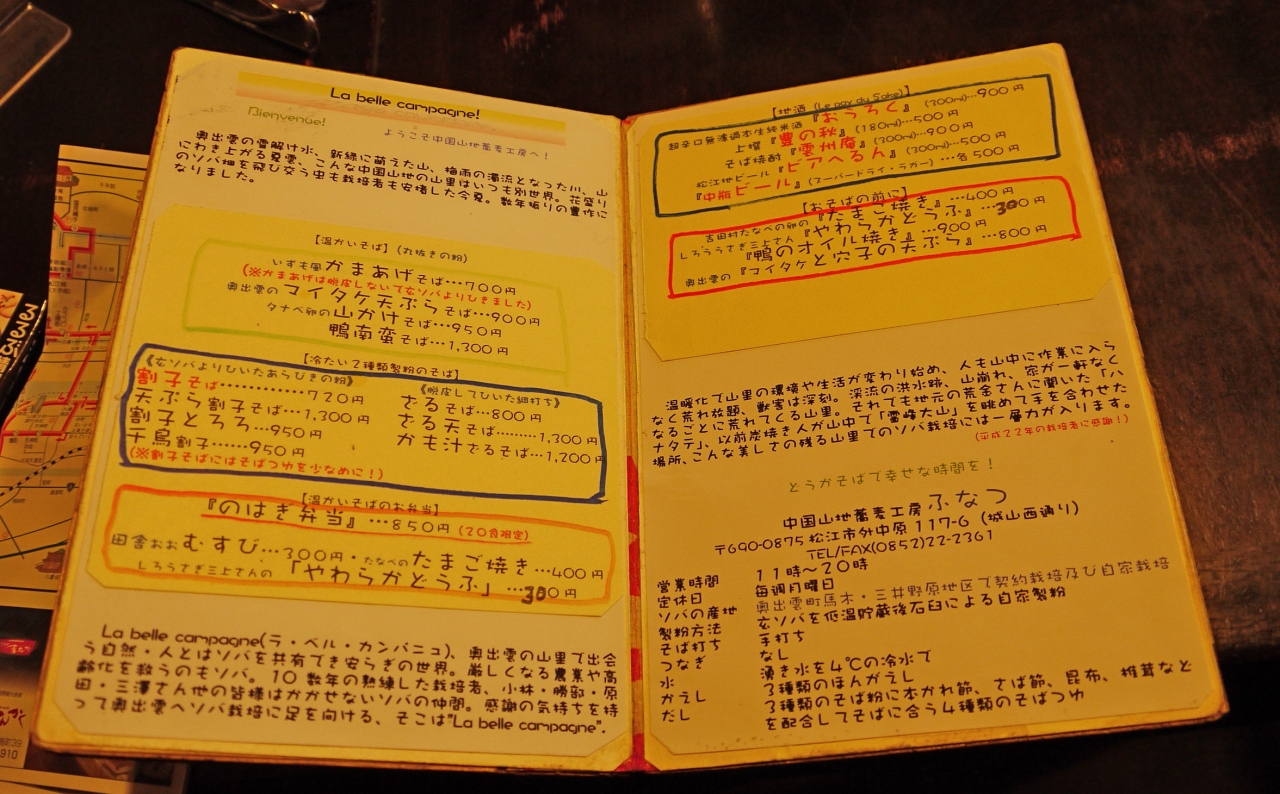 La belle campagne!
Bienvenue!
ようこそ中国山地蕎麦工房へ！
奥出雲の雪解け水、新緑に萌えた山、梅雨の濁流となった川、山
にわき上がる夏雲、こんな中国山地の山里はいつも別世界。花盛り
のソバ畑を飛び交う虫も栽培者も安堵した今夏。数年振りの豊作に
なりました。
【温かいそば】(丸抜きの粉)
いずも風かまあげそば…700円
(※かまあげは脱皮しないで玄ソバよりひきました)
奥出雲のマイタケ天ぷらそば…900円
タナベ卵の山かけそば…950円
鴨南蛮そば…1,300円
【冷たい2種類製粉のそば】
《玄ソバよりひいたあらびきの粉》
割子そば…………720円
天ぷら割子そば…1,300円
割子とろろ…950円
千鳥割子……950円
(※割子そばにはそばつゆを少なめに！)
《脱皮してひいた細打ち》
ざるそば…800円
ざる天そば………1,300円
かも汁ざるそば…1,200円
【温かいそばのお弁当】
『のはぎ弁当』…850円(20食限定)
田舎おおむすび…300円・たなべのたまご焼き…400円
しろうさぎ三上さんの「やわらかどうふ」…300円
La belle campagne(ラ・ベル・カンパニュ)、奥出雲の山里で出会
う自然・人とはソバを共有でき安らぎの世界。厳しくなる農業や高
齢化を救うのもソバ。10数年の熟練した栽培者、小林・勝部・原
田・三澤さん他の皆様はかかせないソバの仲間。感謝の気持ちを持
って奥出雲へソバ栽培に足を向ける、そこは"La belle campagne".
【地酒 (Le pay du Sake)】
超辛口無濾過本生純米酒『おうろく』(300ml)…900円
上撰『豊の秋』(180ml)…500円
そば焼酎『雲州庵』(300ml)…900円
松江地ビール『ビアへるん』(300ml)…500円
『中瓶ビール』(スーパードライ・ラガー)…各500円
【おそばの前に】
吉田村たなべの卵の『たまご焼き』…400円
しろうさぎ三上さん『やわらかどうふ』…300円
『鴨のオイル焼き』…900円
奥出雲の『マイタケと穴子の天ぷら』…800円
温暖化で山里の環境や生活が変わり始め、人も山中に作業に入ら
なく荒れ放題、獣害は深刻。渓流の洪水跡、山崩れ、家が一軒なく
なるごとに荒れてくる山里。それでも地元の荒金さんに聞いた「ハ
ナタテ」、以前炭焼き人が山中で「霊峰大山」を眺めて手を合わせた
場所、こんな美しさの残る山里でのソバ栽培には一層力が入ります。
(平成22年の栽培者に感謝！)
どうかそばで幸せな時間を！
中国山地蕎麦工房ふなつ
〒690-0875 松江市外中原117-6 (城山西通り)
TEL/FAX(0852)22-2361
営業時間 11時～20時
定休日 毎週月曜日
ソバの産地 奥出雲町馬木・三井野原地区で契約栽培及び自家栽培
製粉方法 玄ソバを低温貯蔵後石臼による自家製粉
そば打ち 手打ち
つなぎ なし
水 湧き水を4℃の冷水で
かえし 3種類のほんがえし
だし 3種類のそば粉に本かれ節、さば節、昆布、椎茸など
を配合してそばに合う4種類のそばつゆ